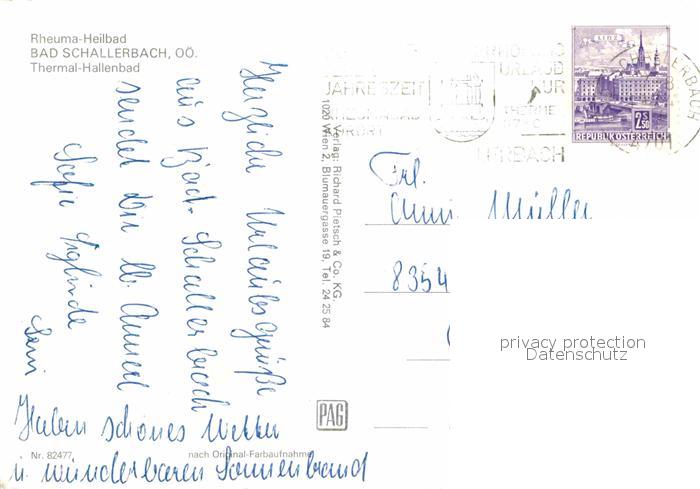 Rheuma-Heilbad
BAD SCHALLERBACH, OÖ.
Thermal-Hallenbad
Herzliche Urlaubsgrüße
aus Bad-Schallerbach
sendet Dir lb. Annerl
Sefie Sieglinde
Haben schönes Wetter
u. wunderbaren Sonnenbrand
Nr. 82477
nach Original-Farbaufnahme
Verlag: Richard Pietsch & Co. KG.
1020 Wien 2, Blumauergasse 19, Tel. 24 25 84
PAG
JAHRESZEIT
URLAUB
KUR
THERME
LINZ
2.50
REPUBLIK ÖSTERREICH
Frl.
Anni Müller
8354
privacy protection
Datenschutz